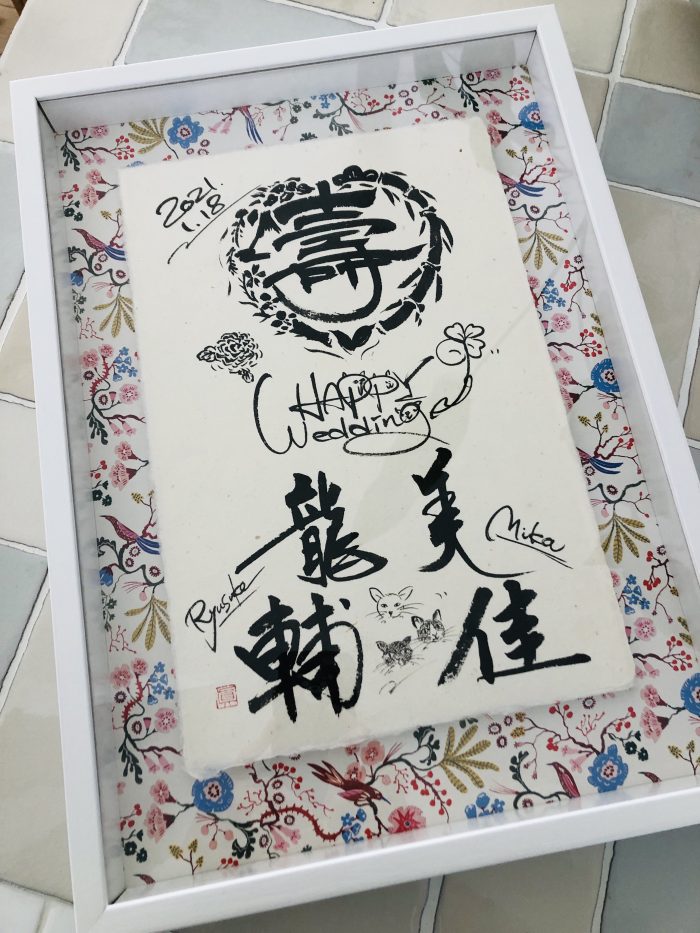 2021
1.18
壽
HAPPY
Wedding
美佳
Mika
龍輔
Ryusuke